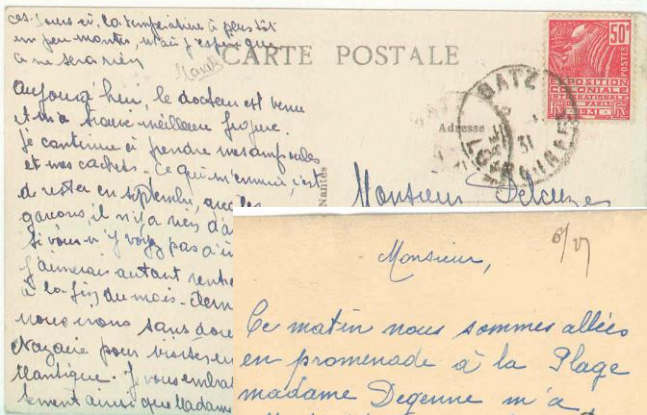 ces jours ci, la température a plustôt
un peu montée, mais j'espère que
ce ne sera rien
CARTE POSTALE
Aujourd'hui, le docteur est venu
et m'a trouvé meilleure figure.
Je continue à prendre mes ampoules
et mes cachets. Ce qui m'ennuie, c'est
de rester en septembre, avec les
garçons, il n'y a rien d'a
Si vous n'y voyez pas d'in
j'aimerais autant rentre
à la fin du mois.
nous irons sans dou
Nazaire pour visiter
tlantique. Je vous embra
tement ainsi que Madame
Adresse
Nantes
BATZ
31
LOIRE INFRE
50c
POSTES
EXPOSITION
COLONIALE
INTERNATIONALE
PARIS
1931
Monsieur Delouzes
Monsieur,
Ce matin nous sommes allées
en promenade à la Plage
madame Degenne m'a